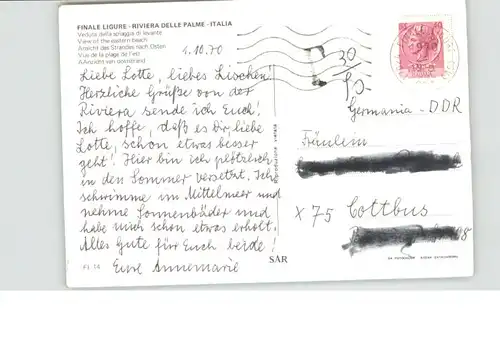 FINALE LIGURE - RIVIERA DELLE PALME - ITALIA
Veduta della spiaggia di levante
View of the eastern beach
Ansicht des Strandes nach Osten
Vue de la plage de l'est
1.10.70
30
Liebe Lotte, liebes Lieschen!
Herzliche Grüße von der
Riviera sende ich Euch!
Ich hoffe, daß es Dir, liebe
Lotte, schon etwas besser
geht! Hier bin ich plötzlich
in den Sommer versetzt. Ich
schwimme im Mittelmeer und
nehme Sonnenbäder und
habe mich schon etwas erholt.
Alles Gute für Euch beide!
Eure Annemarie
FL 14
SAR
Germania-DDR
Fräulein
X 75 Cottbus